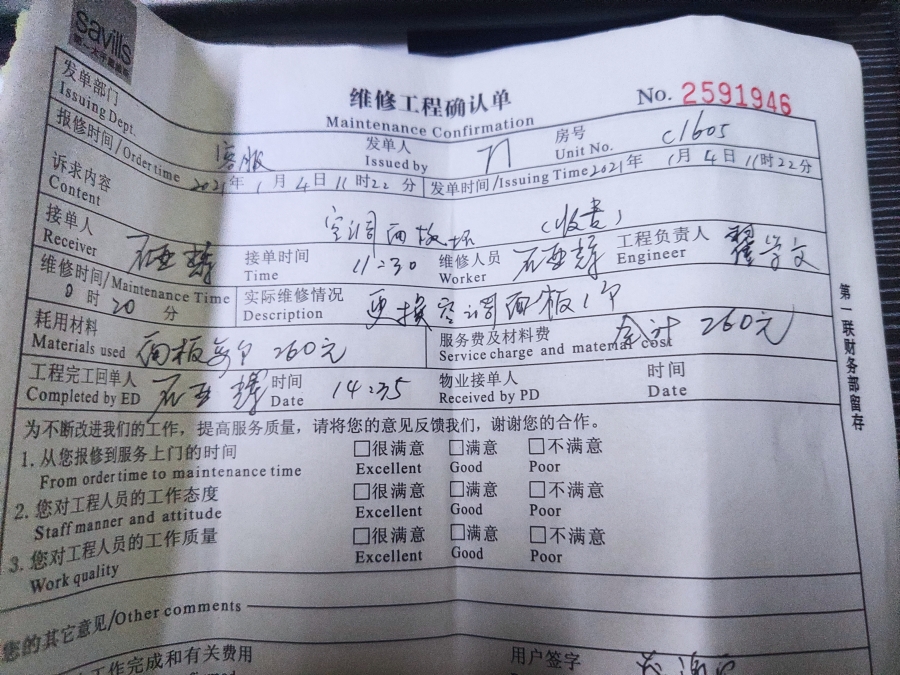 savills
维修工程确认单
Maintenance Confirmation
No. 2591946
发单部门
Issuing Dept.
客服
发单人
Issued by
房号
Unit No.
C1605
报修时间/Ordertime 2021年1月4日11时22分
发单时间/Issuing Time 2021年1月4日11时22分
诉求内容
Content
空调面板坏 (收费)
接单人
Receiver
接单时间
Time
11:30
维修人员
Worker
工程负责人
Engineer
翟学文
维修时间/Maintenance Time
0时20分
实际维修情况
Description
更换空调面板1个
耗用材料
Materials used
面板每个260元
服务费及材料费
Service charge and material cost
合计 260元
工程完工回单人
Completed by ED
时间
Date
14:35
物业接单人
Received by PD
时间
Date
为不断改进我们的工作，提高服务质量，请将您的意见反馈我们，谢谢您的合作。
1. 从您报修到服务上门的时间
From ordertime to maintenance time
□很满意 □满意 □不满意
Excellent Good Poor
2. 您对工程人员的工作态度
Staff manner and attitude
□很满意 □满意 □不满意
Excellent Good Poor
3. 您对工程人员的工作质量
Work quality
□很满意 □满意 □不满意
Excellent Good Poor
您的其它意见/Other comments
工作完成和有关费用
用户签字
第一联财务部留存